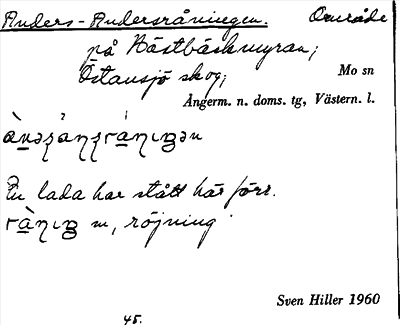 Anders-Andersråningen. Område
på Bästbäckmyran,
Östansjö skog,
Mo sn
Ångerm. n. doms. tg, Västern. l.
En lada har stått här förr.
m, röjning
Sven Hiller 1960
45.